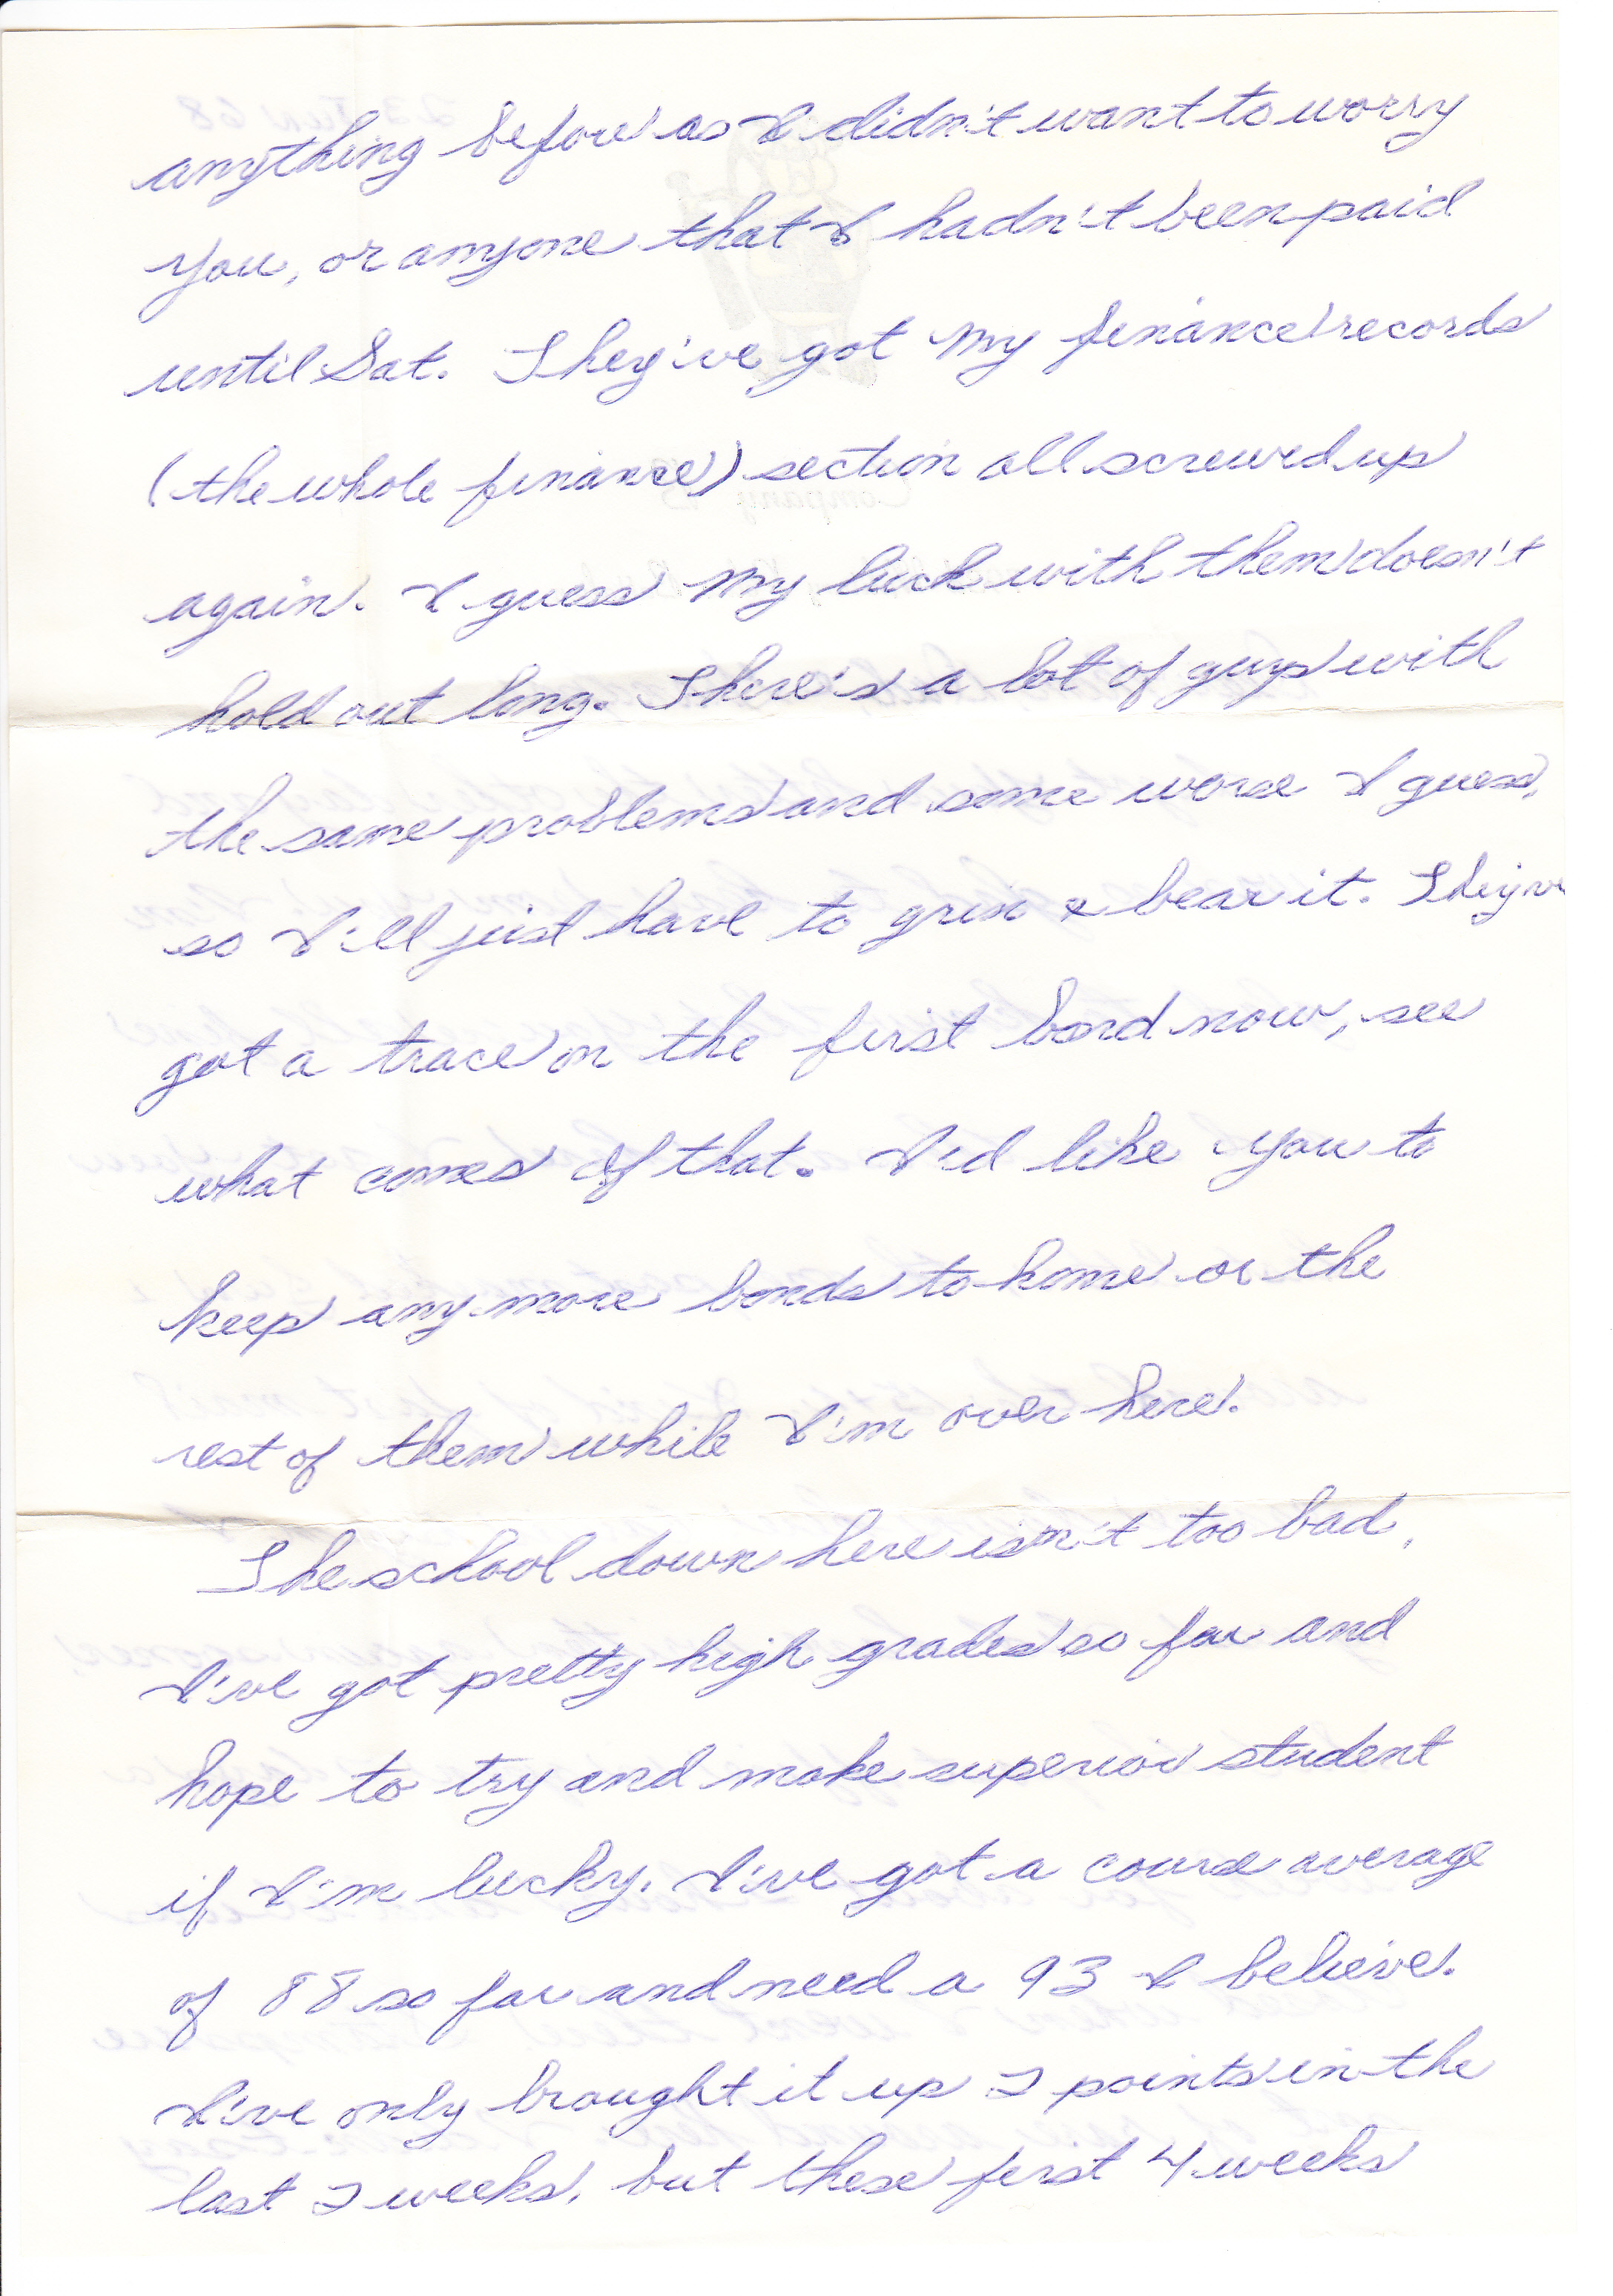 anything before as I didn't want to worry
you, or anyone that I hadn't been paid
until Sat. They've got my finance records
(the whole finance) section all screwed up
again. I guess my luck with them doesn't
hold out long. There's a lot of guys with
the same problems and some worse I guess,
so I'll just have to grin & bear it. They've
got a trace on the first bond now, see
what comes of that. I'd like you to
keep any more bonds to home or the
rest of them while I'm over here.
The school down here isn't too bad,
I've got pretty high grades so far and
hope to try and make superior student
if I'm lucky. I've got a course average
of 88 so far and need a 93 I believe.
I've only brought it up 2 points in the
last 2 weeks, but these first 4 weeks
23 Jun 68
Company